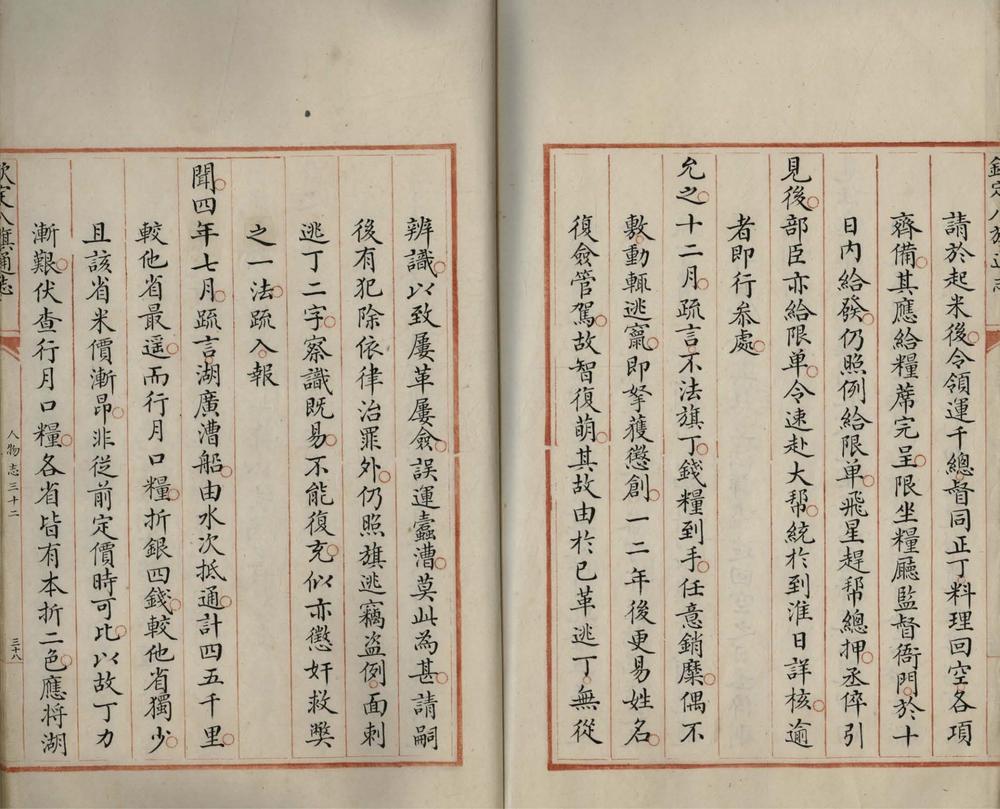 請於起米後令領運千總督同正丁料理回空各項
齊備其應給糧蓆完呈限坐糧廳監督衙門於十
日内給發仍照例給限单飛星趕帮總押丞倅引
見後部臣亦給限单令速赴大帮統於到淮日詳核逾
者即行叅處
允之十二月疏言不法旗丁錢糧到手任意銷糜偶不
敷動輒逃竄即拏獲懲創一二年後更易姓名
復僉管駕故智復萌其故由於已革逃丁無從
辨識以致屢革屢僉誤運蠹漕莫此為甚請嗣
後有犯除依律治罪外仍照旗逃竊盜例面刺
逃丁二字察識既易不能復充似亦懲奸救獘
之一法疏入報
聞四年七月疏言湖廣漕船由水次抵通計四五千里
較他省最遥而行月口糧折銀四錢較他省獨少
且該省米價漸昂非從前定價時可比以故丁力
漸艱伏查行月口糧各省皆有本折二色應将湖
欽定八旗通志
人物志三十二
三十八